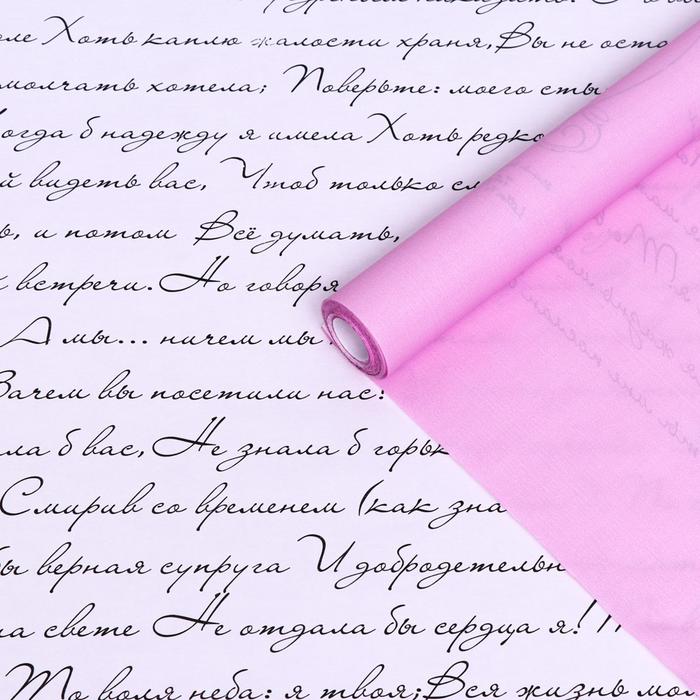 Хоть каплю жалости храня, Вы не оста
молчать хотела; Поверьте: моего сты
Когда б надежду я имела Хоть редко
й видеть вас, Чтоб только сл
ь, и потом Всё думать,
встречи. Но говоря
А мы... ничем мы
Зачем вы посетили нас?
ла б вас, Не знала б горьк
Смирив со временем (как зна
бы верная супруга И добродетельн
на свете Не отдала бы сердца я!
То воля неба: я твоя; Вся жизнь мо